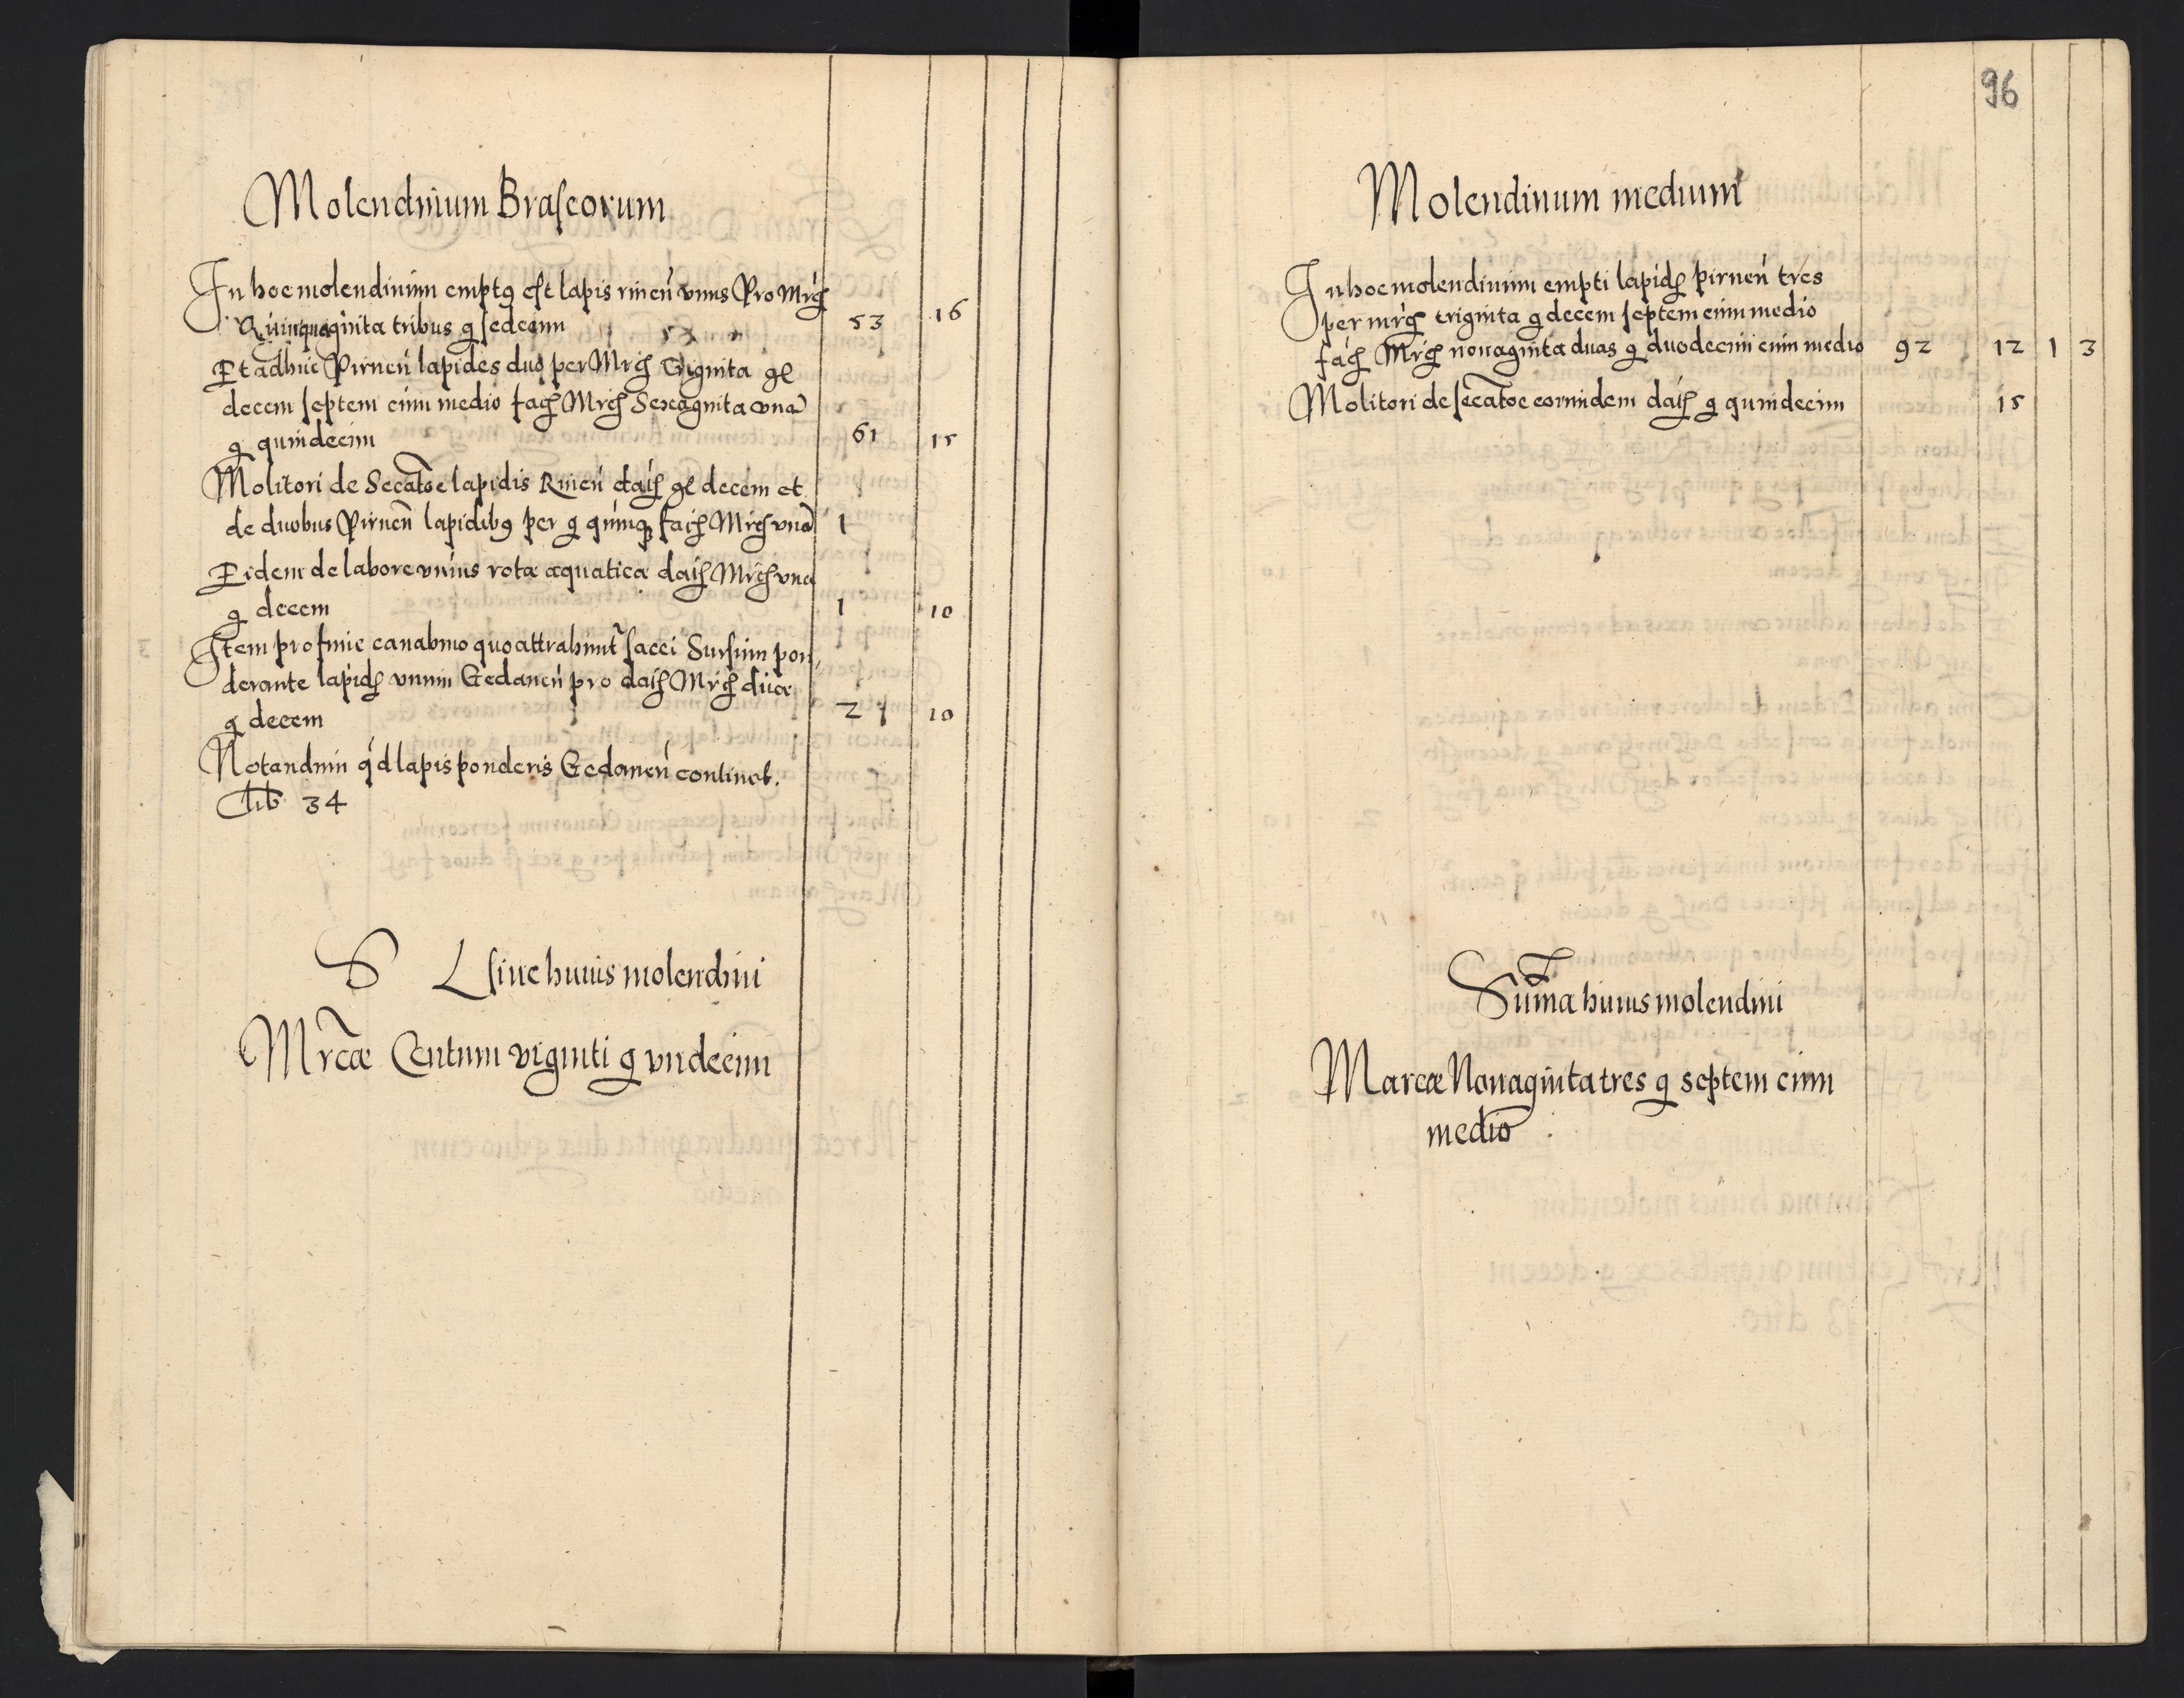 Molendinum Braseorum
In hoc molendinum emptꝯ est lapis rineń vnus Pro Mrcß
Quinquaginta tribus g sedecim 53 16
Et adhuc Pirneń lapides duo per Mrcß Triginta gl
decem septem cum medio facß Mrcß Sexaginta vna
g quindecim 61 15
Molitori de Secatōe lapidis Rineń datß gl decem et
de duobus Pirneń lapidibꝯ per g quinqꝫ facß Mrcß vna 1
Eidem de labore vnius rotæ aquaticæ datß Mrcß vna
g decem 1 10
Item pro fune canabino quo attrahunt̃ sacci Sursum pon„
derante lapidß vnum Gedaneń pro datß Mrcß duæ
g decem 2 10
Notandum qd lapis ponderis Gedaneń continet.
lib 34
S L siue huius molendini
Mrcæ Centum viginti g vndecim
96
Molendinum medium
In hoc molendinum empti lapidß pirneń tres
per mrcß triginta g decem septem cum medio
facß Mrcß nonaginta duas g duodecim cum medio 92 12 1 3
Molitori de secatōe eorundem datß g quindecim 15
Sum̃a huius molendini
Marcæ Nonaginta tres g septem cum
medio